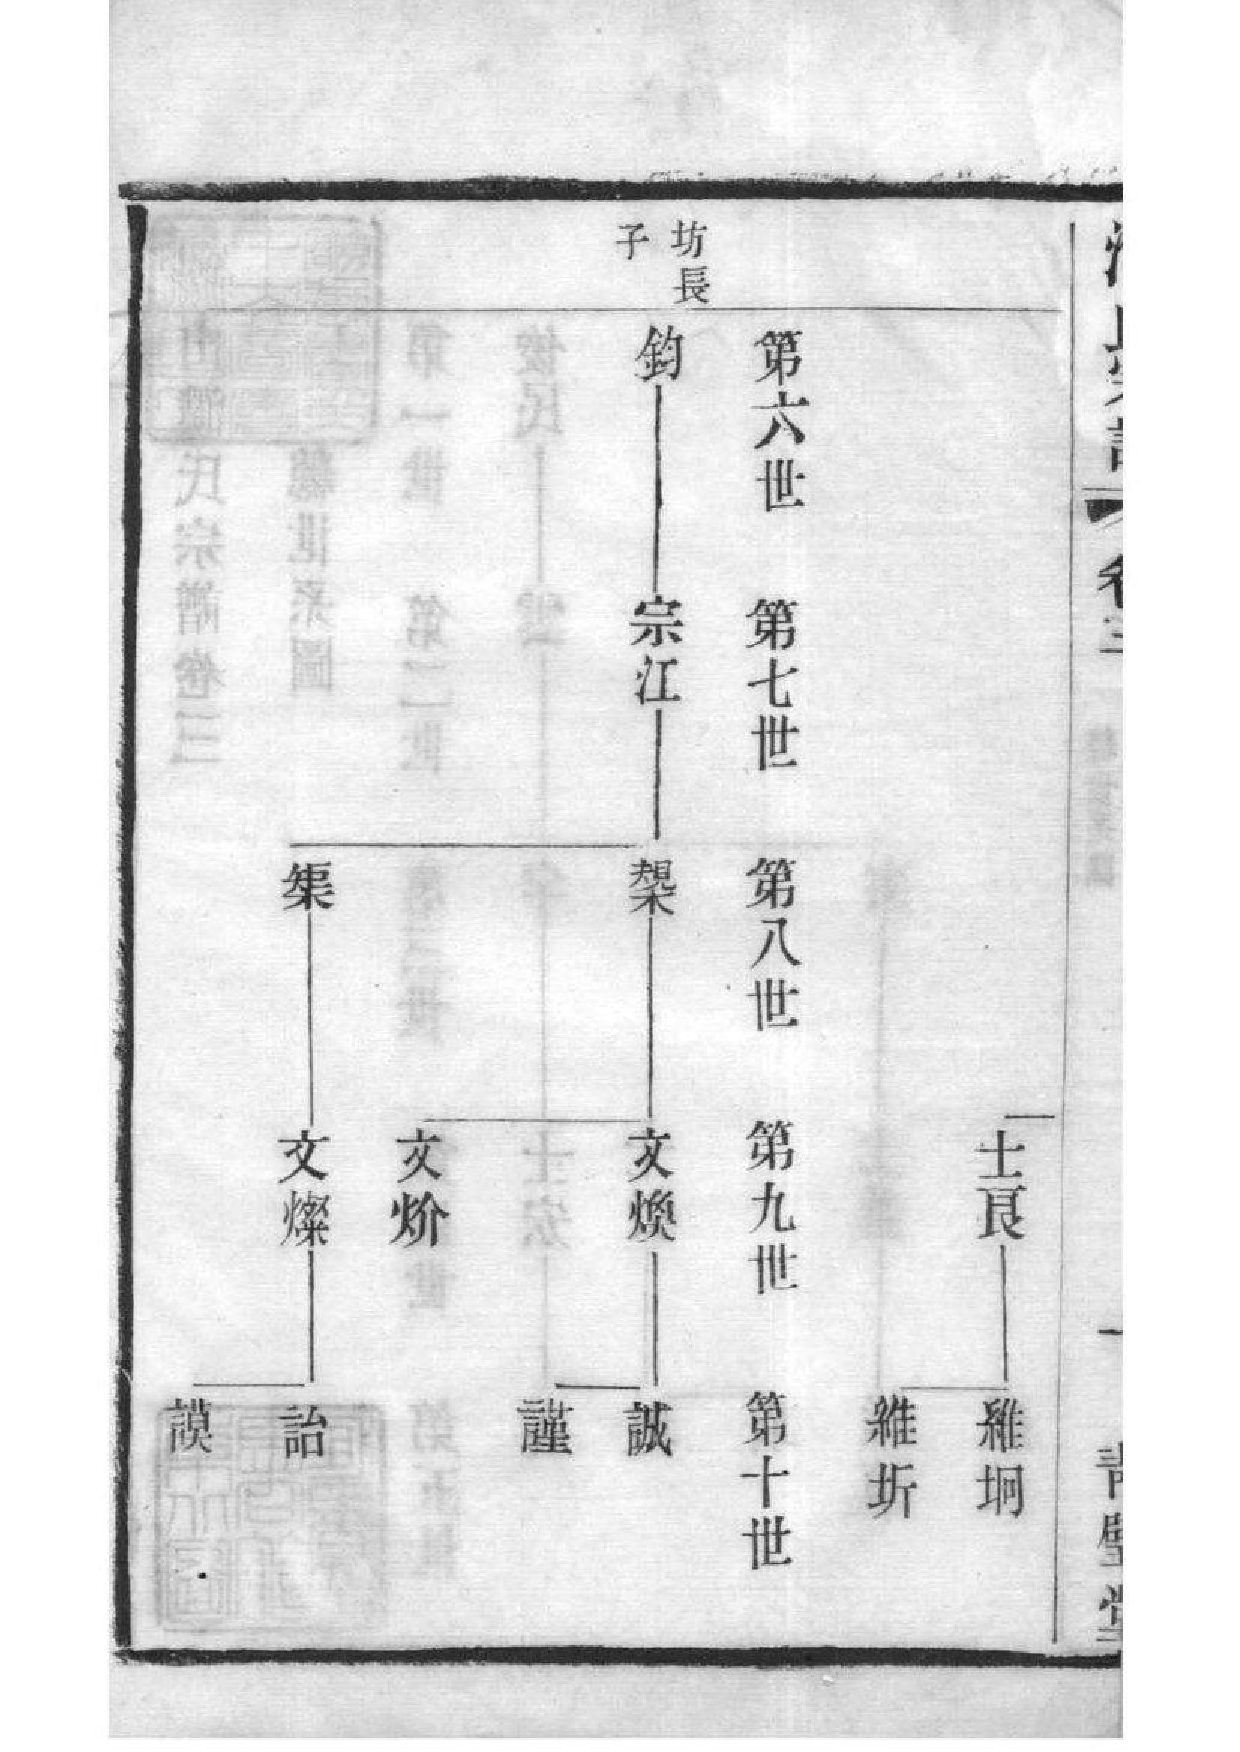 卷三
一
士良
維坰
維圻
第六世
第七世
第八世
第九世
第十世
坊長
子
鈞
宗江
槼
文煥
誠
謹
文炌
榘
文燦
詒
謨